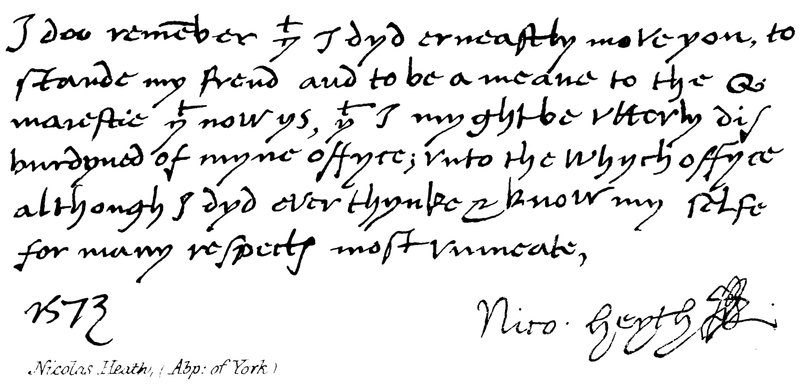 I doo remēber yᵗ I dyd erneastly move you, to
stande my frend and to be a meane to the Q.
maiestie yᵗ now ys, yᵗ I myght be vtterly dis
burdyned of myne offyce; vnto the whych offyce
although I dyd ever thynke & know my selfe
for many respects most vnmeate,
1573
Nico. Heyth
Nicolas Heath, (Abp: of York)